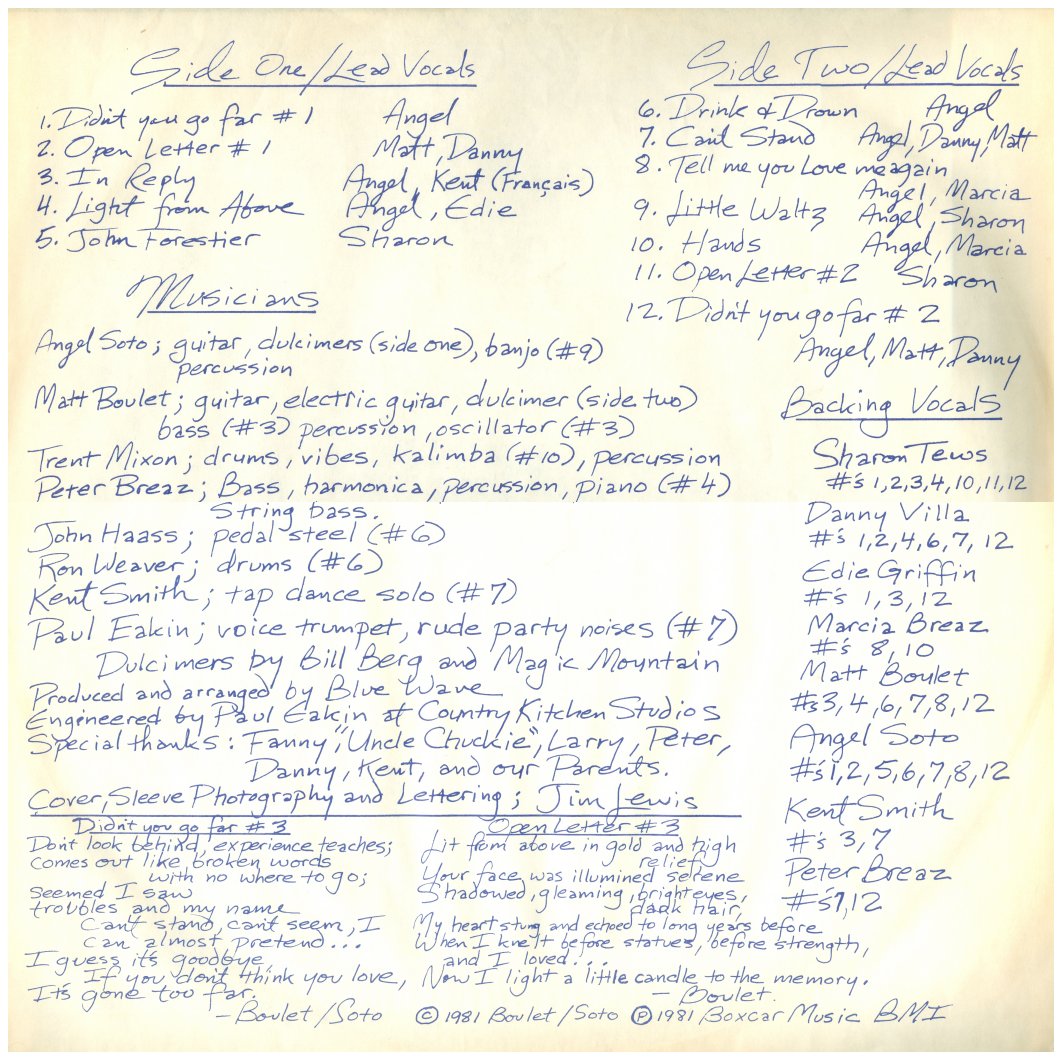 Side One/Lead Vocals
1. Didn't you go far #1 Angel
2. Open Letter #1 Matt, Danny
3. In Reply Angel, Kent (Français)
4. Light from Above Angel, Edie
5. John Forestier Sharon
Side Two/Lead Vocals
6. Drink & Drown Angel
7. Can't Stand Angel, Danny, Matt
8. Tell me you Love me again
Angel, Marcia
9. Little Waltz Angel, Sharon
10. Hands Angel, Marcia
11. Open Letter #2 Sharon
12. Didn't you go far #2
Angel, Matt, Danny
Musicians
Angel Soto; guitar, dulcimers (side one), banjo (#9)
percussion
Matt Boulet; guitar, electric guitar, dulcimer (side two)
bass (#3) percussion, oscillator (#3)
Trent Mixon; drums, vibes, kalimba (#10), percussion
Peter Breaz; Bass, harmonica, percussion, piano (#4)
String bass.
John Haass; pedal steel (#6)
Ron Weaver; drums (#6)
Kent Smith; tap dance solo (#7)
Paul Eakin; voice trumpet, rude party noises (#7)
Dulcimers by Bill Berg and Magic Mountain
Produced and arranged by Blue Wave
Engineered by Paul Eakin at Country Kitchen Studios
Special thanks: Fanny, "Uncle Chuckie", Larry, Peter,
Danny, Kent, and our Parents.
Cover, Sleeve Photography and Lettering; Jim Lewis
Backing Vocals
Sharon Tews
#'s 1,2,3,4,10,11,12
Danny Villa
#'s 1,2,4,6,7,12
Edie Griffin
#'s 1,3,12
Marcia Breaz
#'s 8,10
Matt Boulet
#s 3,4,6,7,8,12
Angel Soto
#'s 1,2,5,6,7,8,12
Kent Smith
#'s 3,7
Peter Breaz
#'s 7,12
Didn't you go far #3
Don't look behind, experience teaches;
comes out like broken words
with no where to go;
seemed I saw
troubles and my name
can't stand, can't seem, I
can almost pretend...
I guess it's goodbye
If you don't think you love,
It's gone too far.
- Boulet/Soto
Open Letter #3
Lit from above in gold and high
relief
Your face was illumined serene
Shadowed, gleaming, bright eyes,
dark hair,
My heart stung and echoed to long years before
When I knelt before statues, before strength,
and I loved...
Now I light a little candle to the memory.
- Boulet.
© 1981 Boulet/Soto ℗ 1981 Boxcar Music BMI